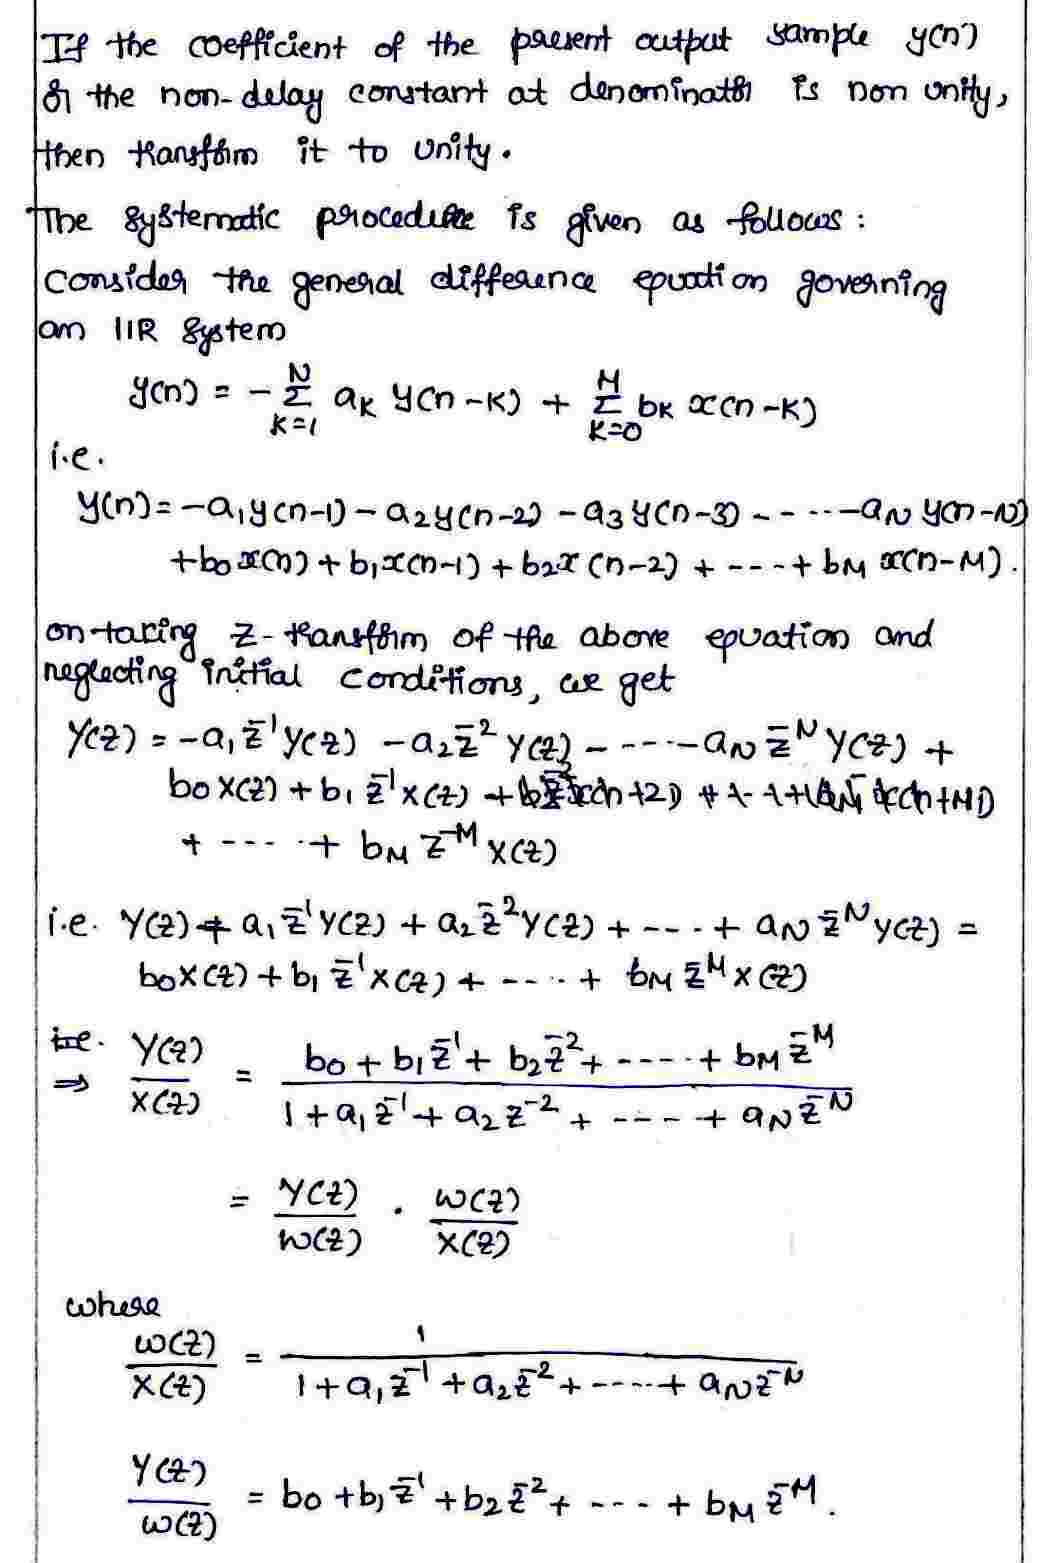 If the coefficient of the present output sample y(n)
or the non-delay constant at denominator is non unity,
then transform it to unity.
The systematic procedure is given as follows:
Consider the general difference equation governing
an IIR system
y(n) = - N Σ K=1 aK y(n-K) + M Σ K=0 bK x(n-K)
i.e.
y(n) = -a1 y(n-1) - a2 y(n-2) - a3 y(n-3) - - ··· - aN y(n-N)
+ b0 x(n) + b1 x(n-1) + b2 x(n-2) + --- + bM x(n-M).
on taking z-transform of the above equation and
neglecting initial conditions, we get
Y(z) = -a1 z^-1 Y(z) - a2 z^-2 Y(z) - ---- - aN z^-N Y(z) +
b0 X(z) + b1 z^-1 X(z) +
+ ---- + bM z^-M X(z)
i.e. Y(z) + a1 z^-1 Y(z) + a2 z^-2 Y(z) + --- + aN z^-N Y(z) =
b0 X(z) + b1 z^-1 X(z) + ---- + bM z^-M X(z)
i.e.
⇒ Y(z)/X(z) = (b0 + b1 z^-1 + b2 z^-2 + ---- + bM z^-M)/(1 + a1 z^-1 + a2 z^-2 + ---- + aN z^-N)
= Y(z)/W(z) . W(z)/X(z)
where
W(z)/X(z) = 1/(1 + a1 z^-1 + a2 z^-2 + ---- + aN z^-N)
Y(z)/W(z) = b0 + b1 z^-1 + b2 z^-2 + --- + bM z^-M.